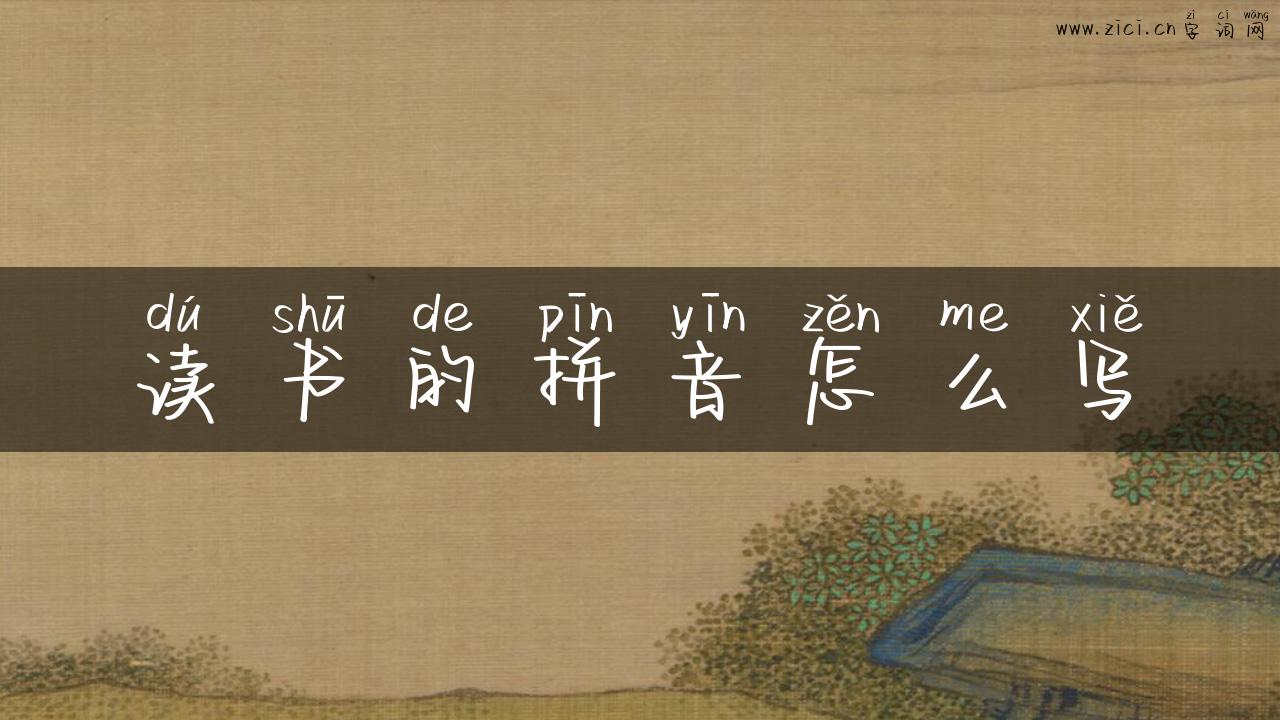 zì cí wǎng
www.zici.cn 字词网
dú shū de pīn yīn zěn me xiě
读书的拼音怎么写